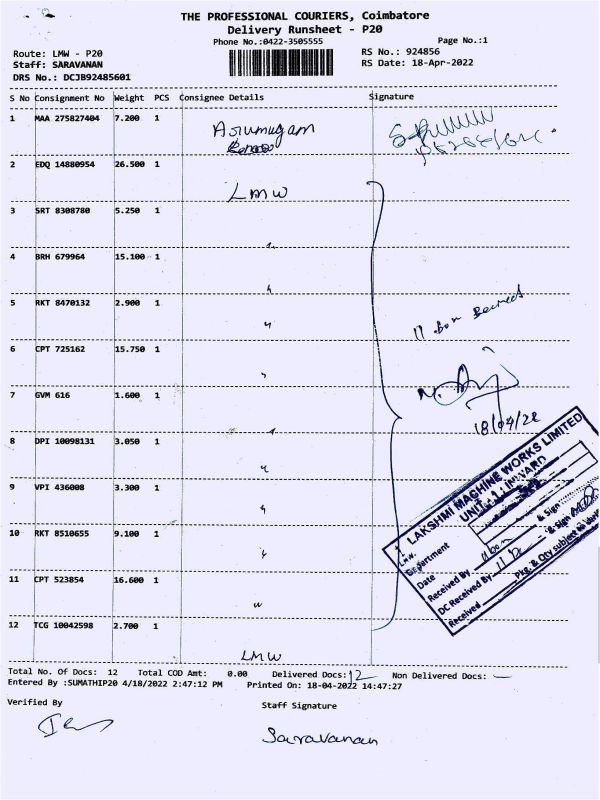 THE PROFESSIONAL COURIERS, Coimbatore
Delivery Runsheet - P20
Phone No.:0422-3505555
Page No.:1
Route: LMW - P20
RS No.: 924856
Staff: SARAVANAN
RS Date: 18-Apr-2022
DRS No.: DCJB92485601
S No Consignment No Weight PCS Consignee Details Signature
1 MAA 275827404 7.200 1 Arumugam
2 EDQ 14880954 26.500 1 LMW
3 SRT 8308780 5.250 1 "
4 BRH 679964 15.100 1 "
5 RKT 8470132 2.900 1 "
6 CPT 725162 15.750 1 "
7 GVM 616 1.600 1 "
8 DPI 10098131 3.050 1 "
9 VPI 436008 3.300 1 "
10 RKT 8510655 9.100 1 "
11 CPT 523854 16.600 1 "
12 TCG 10042598 2.700 1 LMW
11 Box
18/04/22
LAKSHMI MACHINE WORKS LIMITED
UNIT-1: INWARD
LMW.
Department
Date
Received By & Sign
DC Received By & Sign
Received Pkg. & Qty subject to
Total No. Of Docs: 12 Total COD Amt: 0.00 Delivered Docs: 12 Non Delivered Docs: -
Entered By :SUMATHIP20 4/18/2022 2:47:12 PM Printed On: 18-04-2022 14:47:27
Verified By
Staff Signature
Saravanan